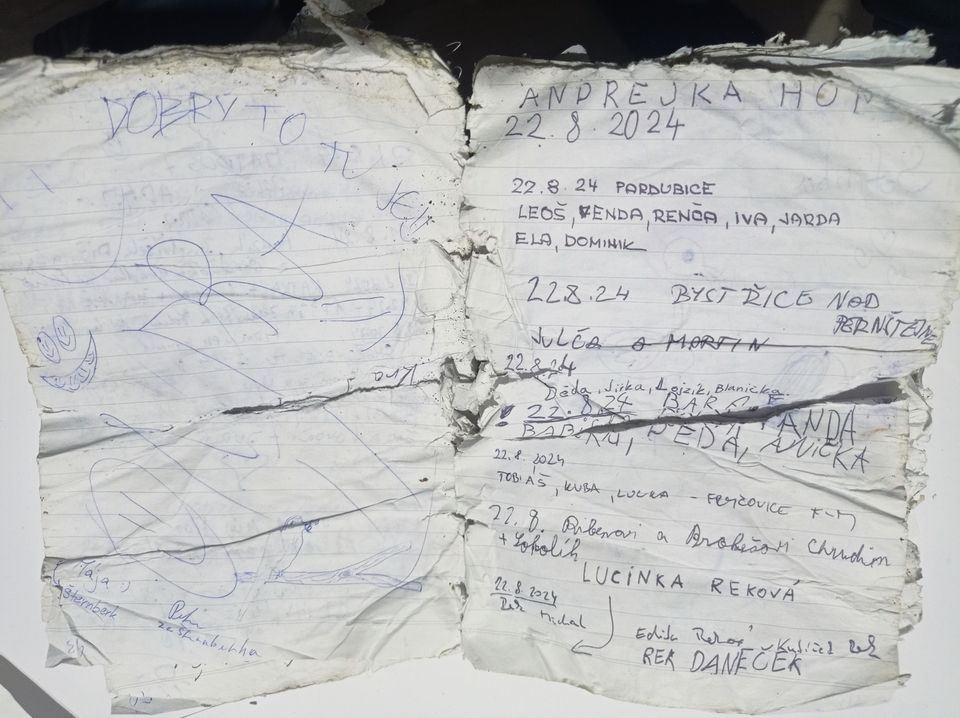 DOBRÝ TO
TU
JE!!
Kra
Tája :)
Šternberk
ze Šternberka
ANDREJKA HOP
22.8.2024
22.8.24 PARDUBICE
LEOŠ, VENDA, RENČA, IVA, JARDA
ELA, DOMINIK
22.8.24 BYSTŘICE NOD
PERNŠTEJNE
JULČA A MARTIN
22.8.24
Děda, Jirka, Lojzík, Blanička
22.8.24 BARA
ANDA
BABIČKA, DĚDA, ANIČKA
22.8.2024
TOBIÁŠ, KUBA, LUCKA - FRYČOVICE F-M
22.8. a Chrudim
+
LUCINKA REKOVÁ
22.8.2024
Rek
Michal
Edita
REK DANEČEK